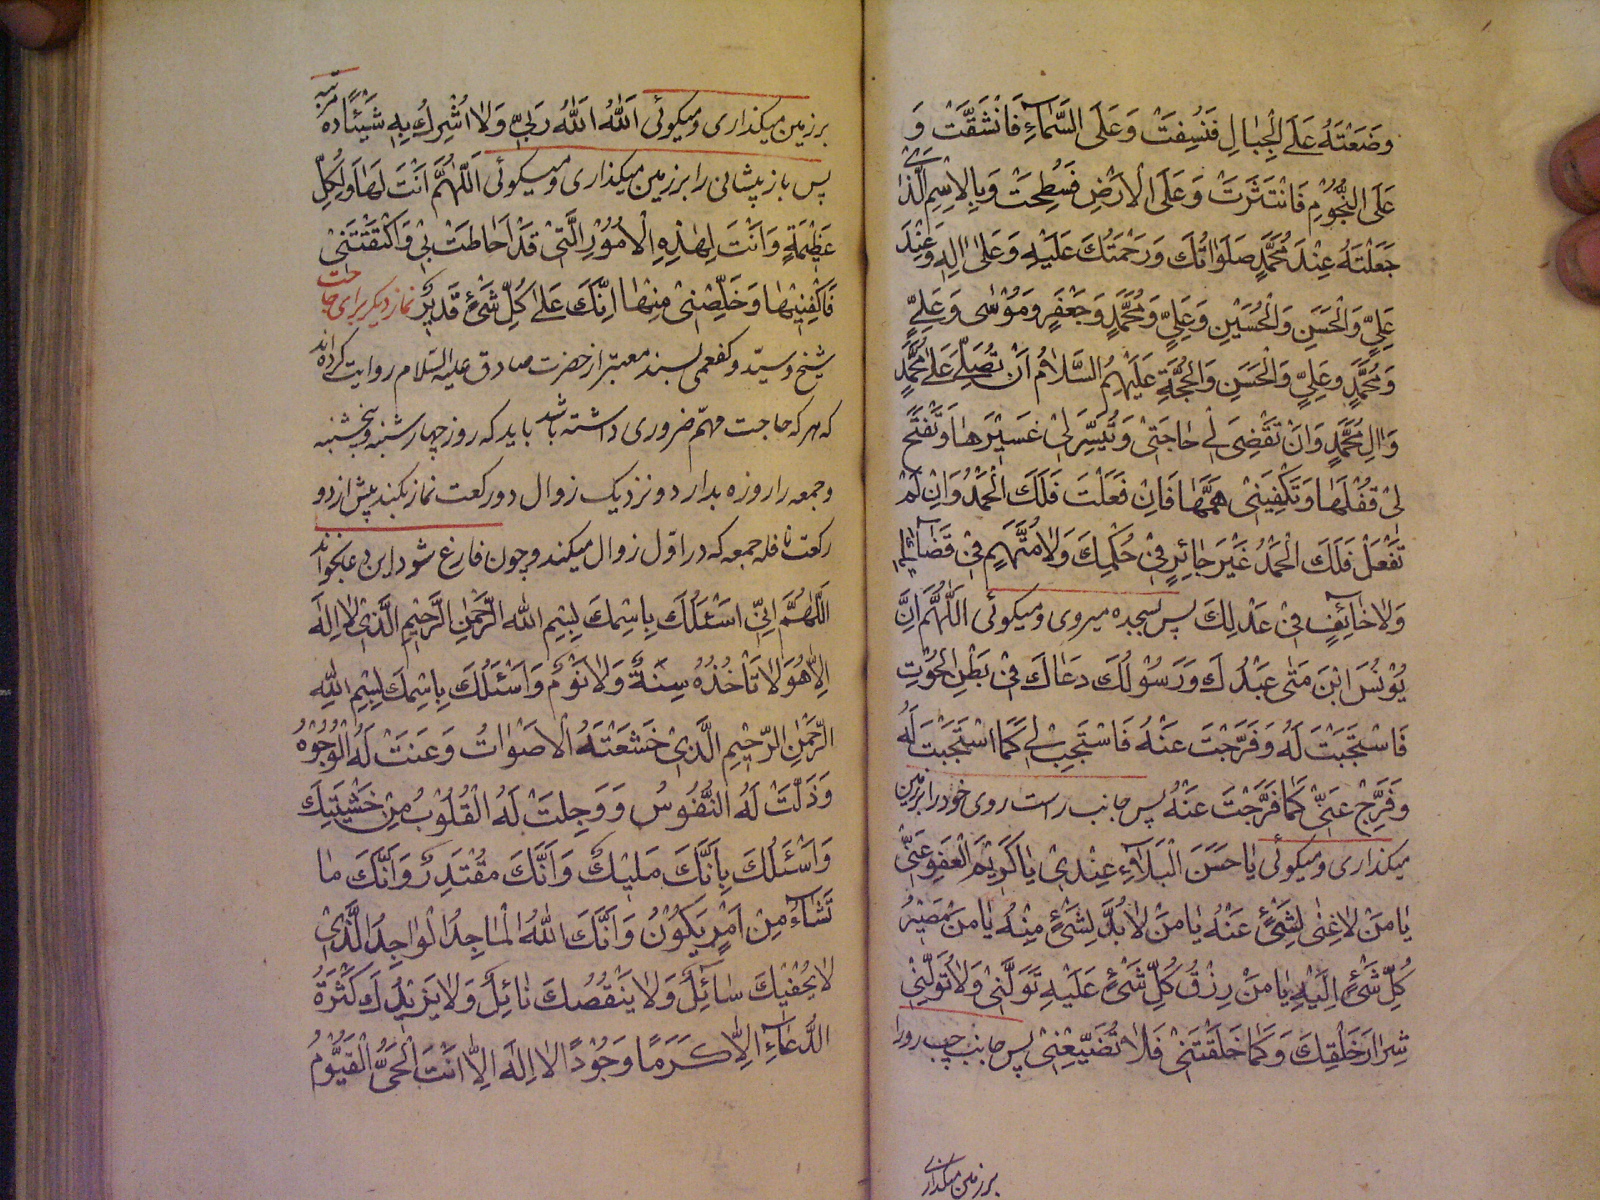 وَضَعْتَهُ عَلَى الْجِبٰالِ فَنُسِفَتْ وَعَلَى السَّمٰآءِ فَانْشَقَّتْ وَ
عَلَى النُّجُوْمِ فَانْتَثَرَتْ وَعَلَى الْاَرْضِ فَسُطِحَتْ وَبِالْاِسْمِ الَّذٰى
جَعَلْتَهُ عِنْدَ مُحَمَّدٍ صَلَوٰاتُكَ وَرَحْمَتُكَ عَلَيْهِ وَعَلٰى اٰلِهِ وَعِنْدَ
عَلِيٍّ وَالْحَسَنِ وَالْحُسَيْنِ وَعَلِيٍّ وَمُحَمَّدٍ وَجَعْفَرٍ وَمُوْسٰى وَعَلِيٍّ
وَمُحَمَّدٍ وَعَلِيٍّ وَالْحَسَنِ وَالْحُجَّةِ عَلَيْهِمُ السَّلَامُ اَنْ تُصَلِّىَ عَلٰى مُحَمَّدٍ
وَاٰلِ مُحَمَّدٍ وَاَنْ تَقْضِىَ لٖى حٰاجَتِىْ وَتُيَسِّرَ لِىْ عَسِيْرَهٰا وَتَفْتَحَ
لِىْ قُفْلَهٰا وَتَكْفِيَنِىْ هَمَّهٰا فَاِنْ فَعَلْتَ فَلَكَ الْحَمْدُ وَاِنْ لَمْ
تَفْعَلْ فَلَكَ الْحَمْدُ غَيْرَ جٰائِرٍ فِىْ حُكْمِكَ وَلٰا مُتَّهَمٍ فِىْ قَضٰآئِكَ
وَلٰا خٰآئِفٍ فِىْ عَدْلِكَ پس بسجده ميروى وميكوئى اَللّٰهُمَّ اِنَّ
يُوْنُسَ ابْنَ مَتّٰى عَبْدُكَ وَرَسُوْلُكَ دَعٰاكَ فِىْ بَطْنِ الْحُوْتِ
فَاسْتَجَبْتَ لَهُ وَفَرَّجْتَ عَنْهُ فَاسْتَجِبْ لٖى كَمَا اسْتَجَبْتَ لَهُ
وَفَرِّجْ عَنّٖى كَمٰا فَرَّجْتَ عَنْهُ پس جانب راست روى خود را بر زمين
ميكذارى وميكوئى يٰا حَسَنَ الْبَلَآءِ عِنْدِىْ يٰا كَرٖيْمَ الْعَفْوِ عَنّٖى
يٰا مَنْ لٰا غِنٰى لِشَىْءٍ عَنْهُ يٰا مَنْ لٰا بُدَّ لِشَىْءٍ مِنْهُ يٰا مَنْ مَصِيْرُ
كُلِّ شَىْءٍ اِلَيْهِ يٰا مَنْ رِزْقُ كُلِّ شَىْءٍ عَلَيْهِ تَوَلَّنِىْ وَلٰا تُوَلِّنِىْ
شِرٰارَ خَلْقِكَ وَكَمٰا خَلَقْتَنِىْ فَلٰا تُضَيِّعْنِىْ پس جانب چپ رو را
بر زمين ميكذارى
بر زمين ميكذارى وميكوئى اَللّٰهُ اَللّٰهُ رَبّٖى وَلٰا اُشْرِكُ بِهِ شَيْئًا ده مرتبه
پس باز پيشانى را بر زمين ميكذارى وميكوئى اَللّٰهُمَّ اَنْتَ لَهٰا وَلِكُلِّ
عَظٖيْمَةٍ وَاَنْتَ لِهٰذِهِ الْاُمُوْرِ الَّتٖىْ قَدْ اَحٰاطَتْ بِىْ وَاكْتَنَفَتْنِىْ
فَاكْفِنِيْهٰا وَخَلِّصْنِىْ مِنْهٰا اِنَّكَ عَلٰى كُلِّ شَىْءٍ قَدٖيْرٌ نماز ديكر براى حاجت
شيخ وسيّد وكفعمى بسند معتبر از حضرت صادق عليه السّلام روايت كرده‌اند
كه هر كه حاجت مهمّ ضرورى داشته باشد بايد كه روز چهارشنبه وپنجشنبه
وجمعه را روزه بدارد ونزديك زوال دو ركعت نماز بكند پيش از دو
ركعت نافله جمعه كه در اوّل زوال ميكند وچون فارغ شود اين دعا بخواند
اَللّٰهُمَّ اِنّٖى اَسْئَلُكَ بِاسْمِكَ بِسْمِ اللّٰهِ الرَّحْمٰنِ الرَّحٖيْمِ الَّذٖىْ لٰا اِلٰهَ
اِلّٰا هُوَ لٰا تَأْخُذُهُ سِنَةٌ وَلٰا نَوْمٌ وَاَسْئَلُكَ بِاسْمِكَ بِسْمِ اللّٰهِ
الرَّحْمٰنِ الرَّحٖيْمِ الَّذٖىْ خَشَعَتْ لَهُ الْاَصْوٰاتُ وَعَنَتْ لَهُ الْوُجُوْهُ
وَذَلَّتْ لَهُ النُّفُوْسُ وَوَجِلَتْ لَهُ الْقُلُوْبُ مِنْ خَشْيَتِكَ
وَاَسْئَلُكَ بِاَنَّكَ مَلٖيْكٌ وَاَنَّكَ مُقْتَدِرٌ وَاَنَّكَ مٰا
تَشٰآءُ مِنْ اَمْرٍ يَكُوْنُ وَاَنَّكَ اللّٰهُ الْمٰاجِدُ الْوٰاجِدُ الَّذٖىْ
لٰا يُحْفٖيْكَ سٰآئِلٌ وَلٰا يَنْقُصُكَ نٰائِلٌ وَلٰا يَزٖيْدُكَ كَثْرَةُ
الدُّعٰآءِ اِلّٰا كَرَمًا وَجُوْدًا لٰا اِلٰهَ اِلّٰا اَنْتَ الْحَىُّ الْقَيُّوْمُ